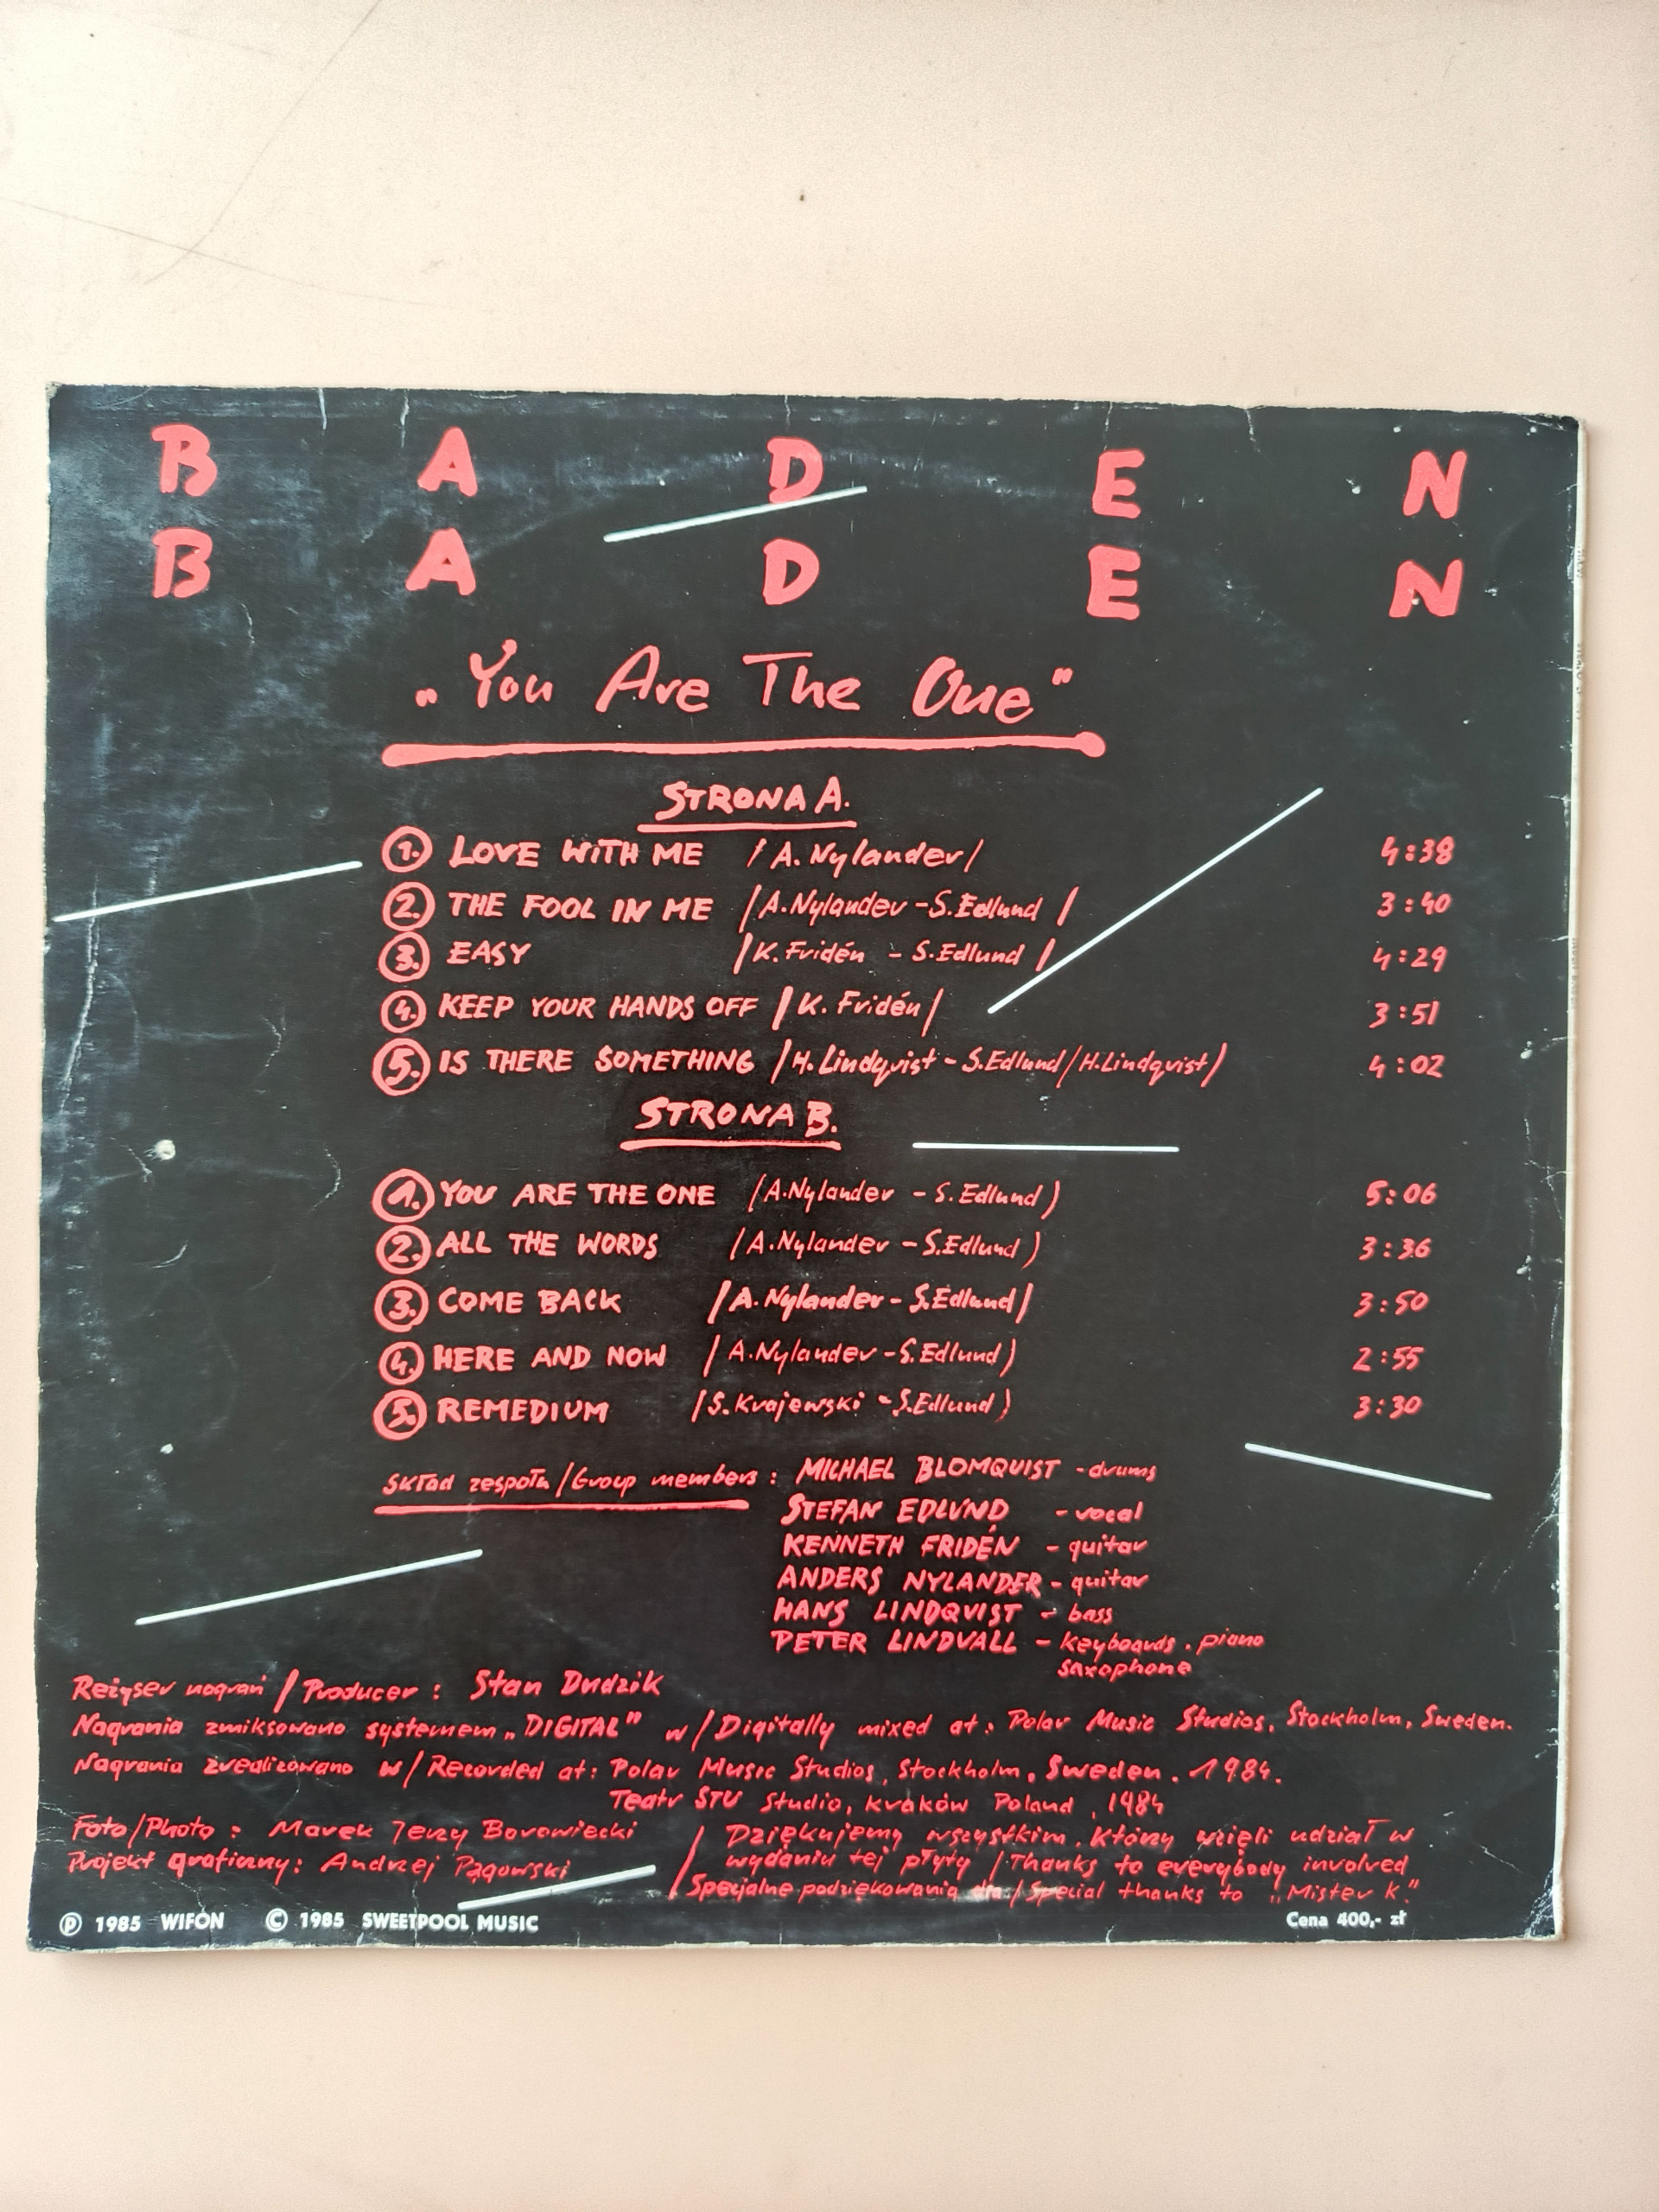 B A D E N
B A D E N
„You Are The One"
STRONA A.
1. LOVE WITH ME /A. Nylander/ 4:38
2. THE FOOL IN ME /A.Nylander-S.Edlund/ 3:40
3. EASY /K.Fridén - S.Edlund/ 4:29
4. KEEP YOUR HANDS OFF /K. Fridén/ 3:51
5. IS THERE SOMETHING /H.Lindqvist-S.Edlund/H.Lindqvist) 4:02
STRONA B.
1. YOU ARE THE ONE /A.Nylander - S.Edlund) 5:06
2. ALL THE WORDS /A.Nylander - S.Edlund) 3:36
3. COME BACK /A.Nylander- S.Edlund/ 3:50
4. HERE AND NOW /A.Nylander-S.Edlund) 2:55
5. REMEDIUM /S.Krajewski-S.Edlund) 3:30
Skład zespołu/Group members: MICHAEL BLOMQUIST - drums
STEFAN EDLUND - vocal
KENNETH FRIDÉN - guitar
ANDERS NYLANDER - guitar
HANS LINDQVIST - bass
PETER LINDVALL - keyboards. piano
saxophone
Reżyser nagrań / Producer: Stan Dudzik
Nagrania zmiksowano systemem „DIGITAL" w/Digitally mixed at: Polar Music Studios, Stockholm, Sweden.
Nagrania zrealizowano w/Recorded at: Polar Music Studios, Stockholm, Sweden. 1984.
Teatr STU Studio, Kraków Poland, 1984
Foto/Photo: Marek Jerzy Borowiecki
Projekt graficzny: Andrzej Pągowski
/ Dziękujemy wszystkim, którzy wzięli udział w
wydaniu tej płyty /Thanks to everybody involved
Specjalne podziękowania dla/Special thanks to „Mister K."
Ⓟ 1985 WIFON © 1985 SWEETPOOL MUSIC
Cena 400,- zł